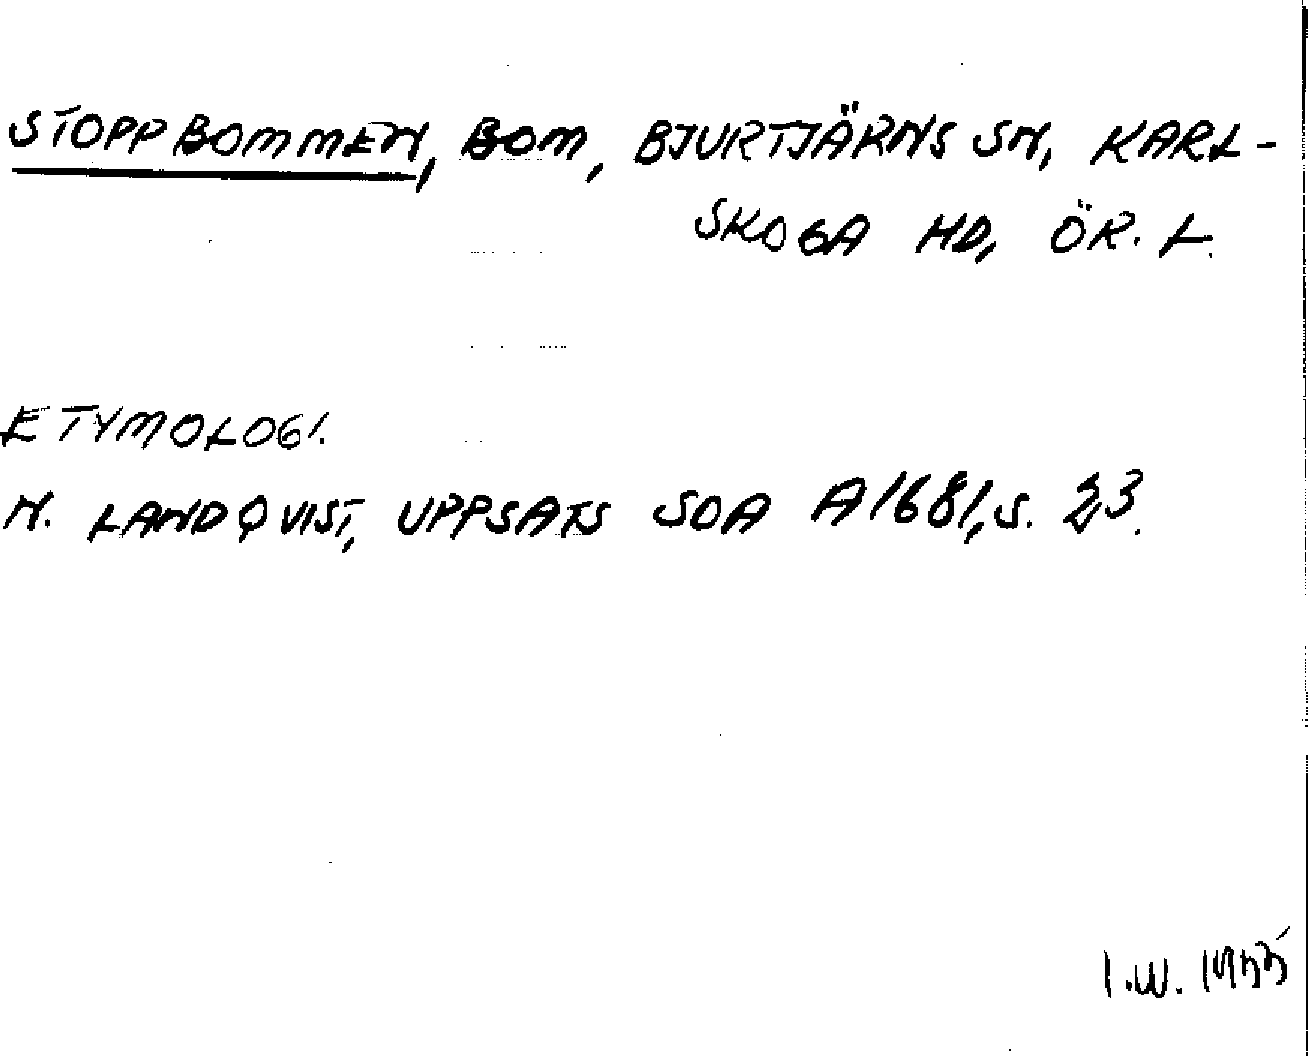 STOPPBOMMEN, BOM, BJURTJÄRNS SN, KARL-
SKOGA HD, ÖR. L.
ETYMOLOGI.
N. LANDQVIST, UPPSATS SOA A1681, S. 23.
I.W. 1955